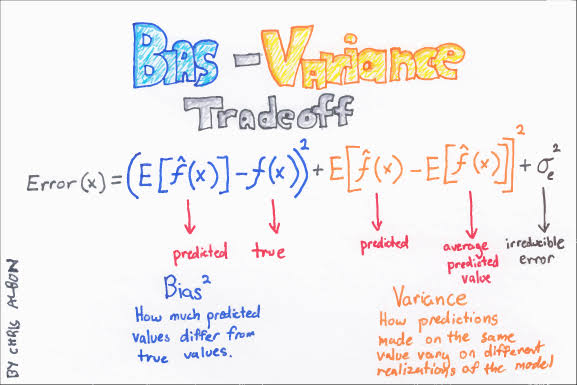 Bias - Variance
Tradeoff
Error(x) = (E[f̂(x)] - f(x))² + E[f̂(x) - E[f̂(x)]]² + σₑ²
predicted true predicted average predicted value irreducible error
Bias²
How much predicted
values differ from
true values.
Variance
How predictions
made on the same
value vary on different
realizations of the model
BY CHRIS ALBON